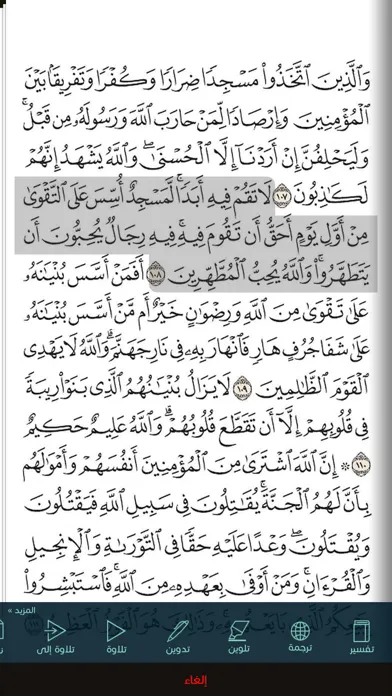 وَٱلَّذِينَ ٱتَّخَذُوا۟ مَسْجِدًا ضِرَارًا وَكُفْرًا وَتَفْرِيقًۢا بَيْنَ
ٱلْمُؤْمِنِينَ وَإِرْصَادًا لِّمَنْ حَارَبَ ٱللَّهَ وَرَسُولَهُۥ مِن قَبْلُ ۚ
وَلَيَحْلِفُنَّ إِنْ أَرَدْنَآ إِلَّا ٱلْحُسْنَىٰ ۖ وَٱللَّهُ يَشْهَدُ إِنَّهُمْ
لَكَـٰذِبُونَ ١٠٧ لَا تَقُمْ فِيهِ أَبَدًا ۚ لَّمَسْجِدٌ أُسِّسَ عَلَى ٱلتَّقْوَىٰ
مِنْ أَوَّلِ يَوْمٍ أَحَقُّ أَن تَقُومَ فِيهِ ۚ فِيهِ رِجَالٌ يُحِبُّونَ أَن
يَتَطَهَّرُوا۟ ۚ وَٱللَّهُ يُحِبُّ ٱلْمُطَّهِّرِينَ ١٠٨ أَفَمَنْ أَسَّسَ بُنْيَـٰنَهُۥ
عَلَىٰ تَقْوَىٰ مِنَ ٱللَّهِ وَرِضْوَٰنٍ خَيْرٌ أَم مَّنْ أَسَّسَ بُنْيَـٰنَهُۥ
عَلَىٰ شَفَا جُرُفٍ هَارٍ فَٱنْهَارَ بِهِۦ فِى نَارِ جَهَنَّمَ ۗ وَٱللَّهُ لَا يَهْدِى
ٱلْقَوْمَ ٱلظَّـٰلِمِينَ ١٠٩ لَا يَزَالُ بُنْيَـٰنُهُمُ ٱلَّذِى بَنَوْا۟ رِيبَةً
فِى قُلُوبِهِمْ إِلَّآ أَن تَقَطَّعَ قُلُوبُهُمْ ۗ وَٱللَّهُ عَلِيمٌ حَكِيمٌ
١١٠ ۞ إِنَّ ٱللَّهَ ٱشْتَرَىٰ مِنَ ٱلْمُؤْمِنِينَ أَنفُسَهُمْ وَأَمْوَٰلَهُم
بِأَنَّ لَهُمُ ٱلْجَنَّةَ ۚ يُقَـٰتِلُونَ فِى سَبِيلِ ٱللَّهِ فَيَقْتُلُونَ
وَيُقْتَلُونَ ۖ وَعْدًا عَلَيْهِ حَقًّا فِى ٱلتَّوْرَىٰةِ وَٱلْإِنجِيلِ
وَٱلْقُرْءَانِ ۚ وَمَنْ أَوْفَىٰ بِعَهْدِهِۦ مِنَ ٱللَّهِ ۚ فَٱسْتَبْشِرُوا۟
المزيد »
بِبَيْعِكُمُ ٱلَّذِى بَايَعْتُم بِهِۦ ۚ وَذَٰلِكَ هُوَ ٱلْفَوْزُ ٱلْعَظِيمُ ١١١
تفسير ترجمة تلوين تدوين تلاوة تلاوة إلى
إلغاء